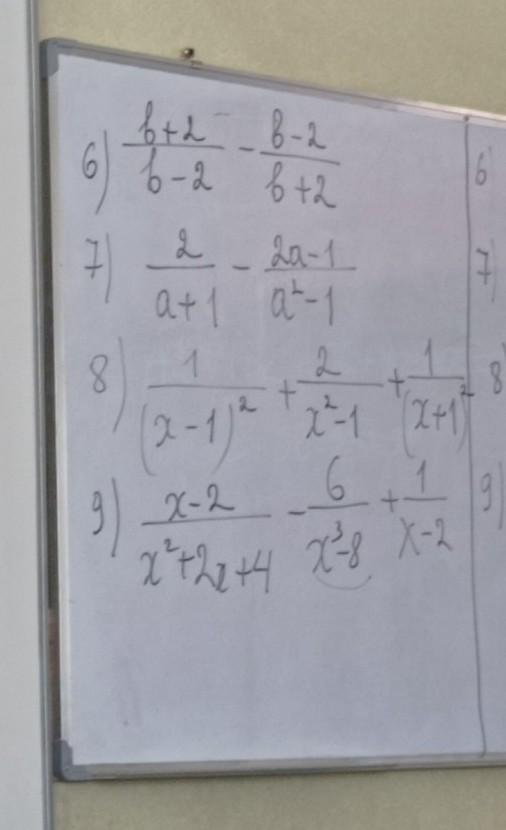 6) (b+2)/(b-2) - (b-2)/(b+2)
6
7) 2/(a+1) - (2a-1)/(a²-1)
7)
8) 1/(x-1)² + 2/(x²-1) + 1/(x+1)²
8)
9) (x-2)/(x²+2x+4) - 6/(x³-8) + 1/(x-2)
9)